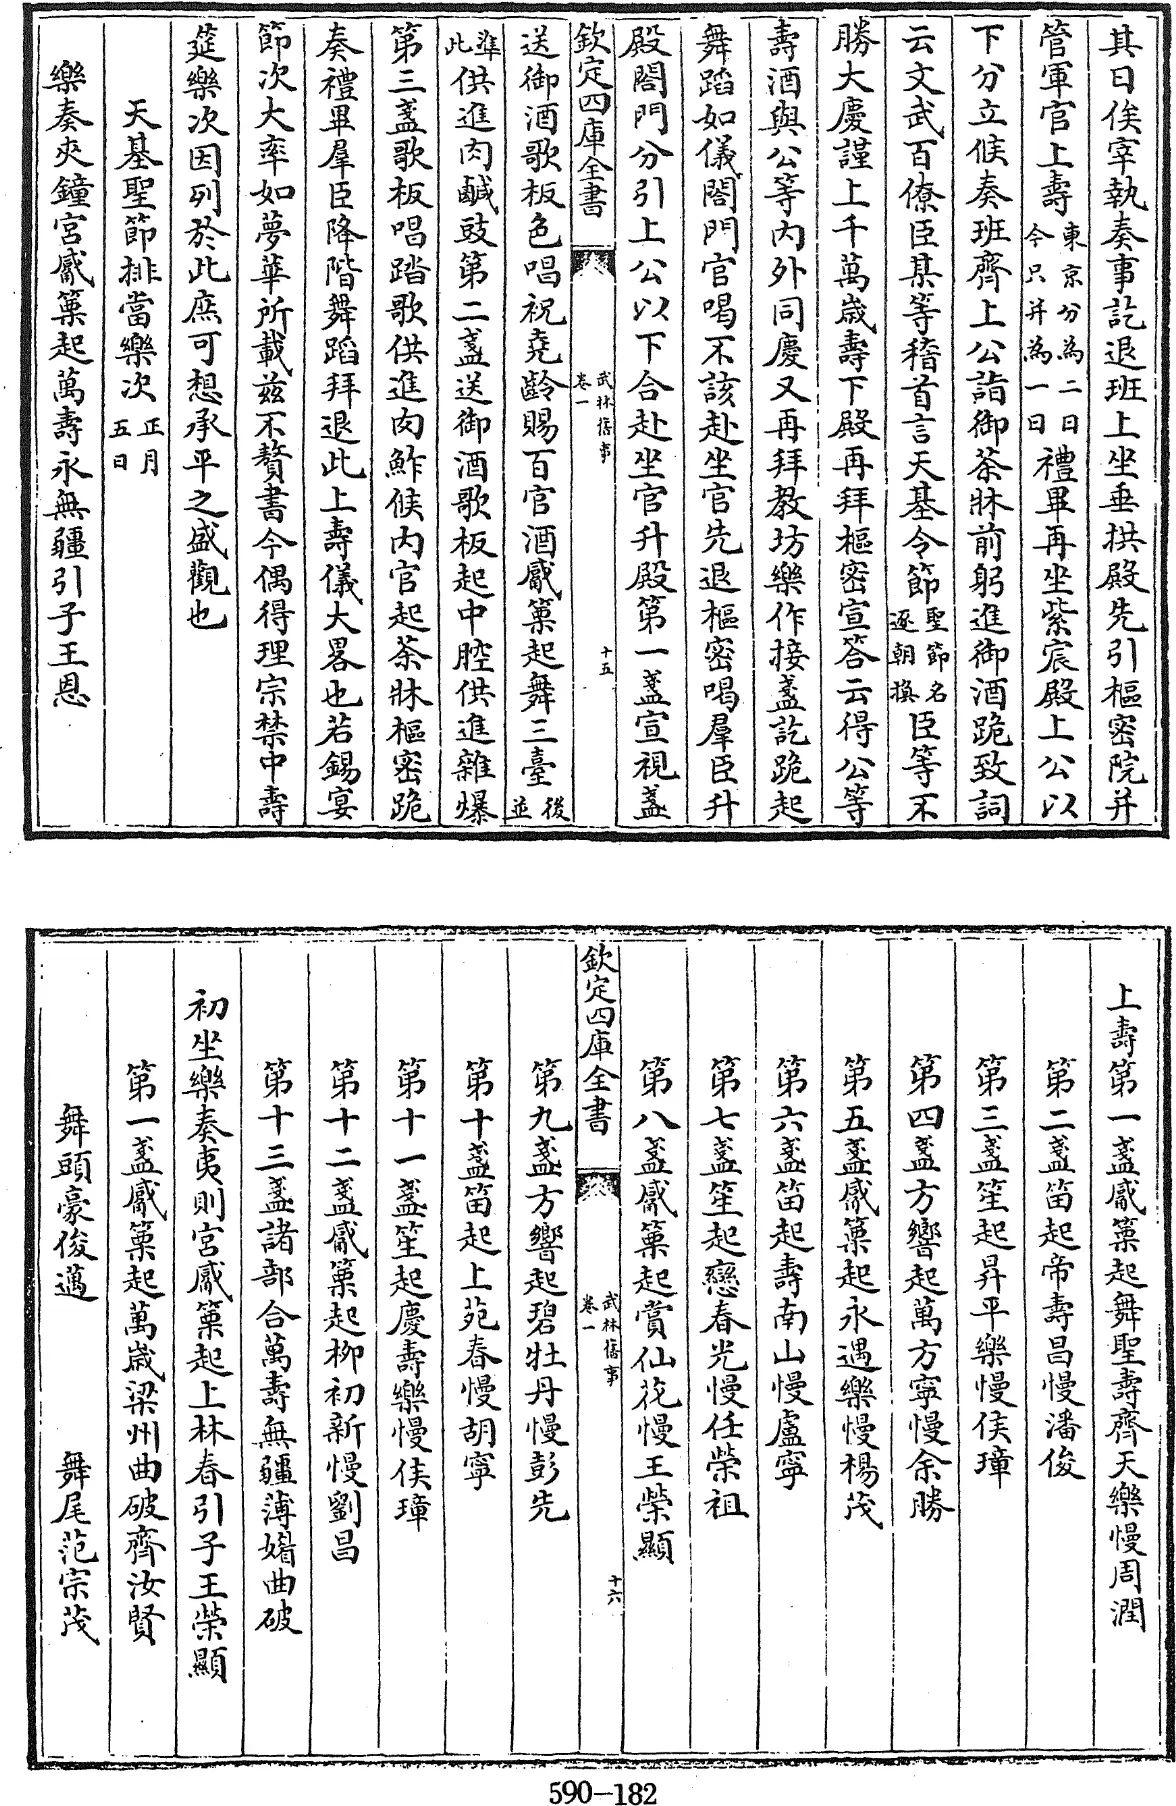 其日俟宰執奏事訖退班上坐垂拱殿先引樞密院并
管軍官上壽東京分為二日今只并為一日禮畢再坐紫宸殿上公以
下分立候奏班齊上公詣御茶牀前躬進御酒跪致詞
云文武百僚臣某等稽首言天基令節聖節名逐朝換臣等不
勝大慶謹上千萬歲壽下殿再拜樞密宣答云得公等
壽酒與公等內外同慶又再拜教坊樂作接盞訖跪起
舞蹈如儀閤門官喝不該赴坐官先退樞密喝羣臣升
殿閤門分引上公以下合赴坐官升殿第一盞宣視盞
欽定四庫全書
武林舊事
卷一
十五
送御酒歌板色唱祝堯齡賜百官酒觱篥起舞三臺後並
準此供進肉鹹豉第二盞送御酒歌板起中腔供進雜爆
第三盞歌板唱踏歌供進肉鮓候內官起茶牀樞密跪
奏禮畢羣臣降階舞蹈拜退此上壽儀大畧也若錫宴
節次大率如夢華所載茲不贅書今偶得理宗禁中壽
筵樂次因列於此庶可想承平之盛觀也
天基聖節排當樂次正月五日
樂奏夾鐘宮觱篥起萬壽永無疆引子王恩
上壽第一盞觱篥起舞聖壽齊天樂慢周潤
第二盞笛起帝壽昌慢潘俊
第三盞笙起昇平樂慢侯璋
第四盞方響起萬方寧慢余勝
第五盞觱篥起永遇樂慢楊茂
第六盞笛起壽南山慢盧寧
第七盞笙起戀春光慢任榮祖
第八盞觱篥起賞仙花慢王榮顯
欽定四庫全書
武林舊事
卷一
十六
第九盞方響起碧牡丹慢彭先
第十盞笛起上苑春慢胡寧
第十一盞笙起慶壽樂慢侯璋
第十二盞觱篥起柳初新慢劉昌
第十三盞諸部合萬壽無疆薄媚曲破
初坐樂奏夷則宮觱篥起上林春引子王榮顯
第一盞觱篥起萬歲梁州曲破齊汝賢
舞頭豪俊邁　舞尾范宗茂
590-182